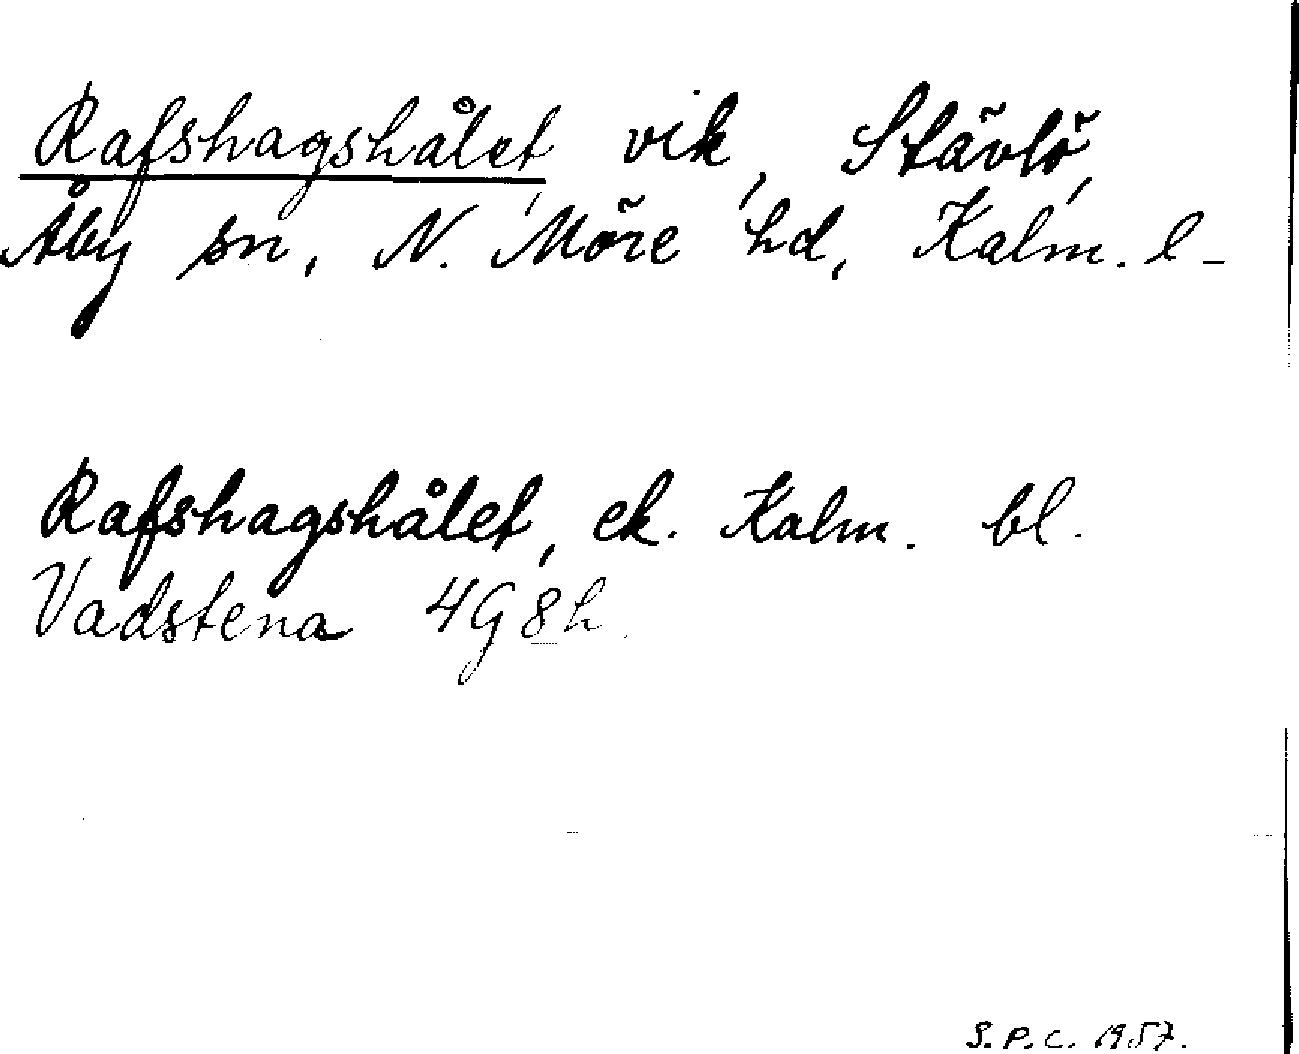 Rafshagshålet, vik, Stävlö,
Åby sn, N. Möre hd, Kalm. l-
Rafshagshålet, ek. Kalm. bl.
Vadstena 4G 8h.
S.P.C. 1957.